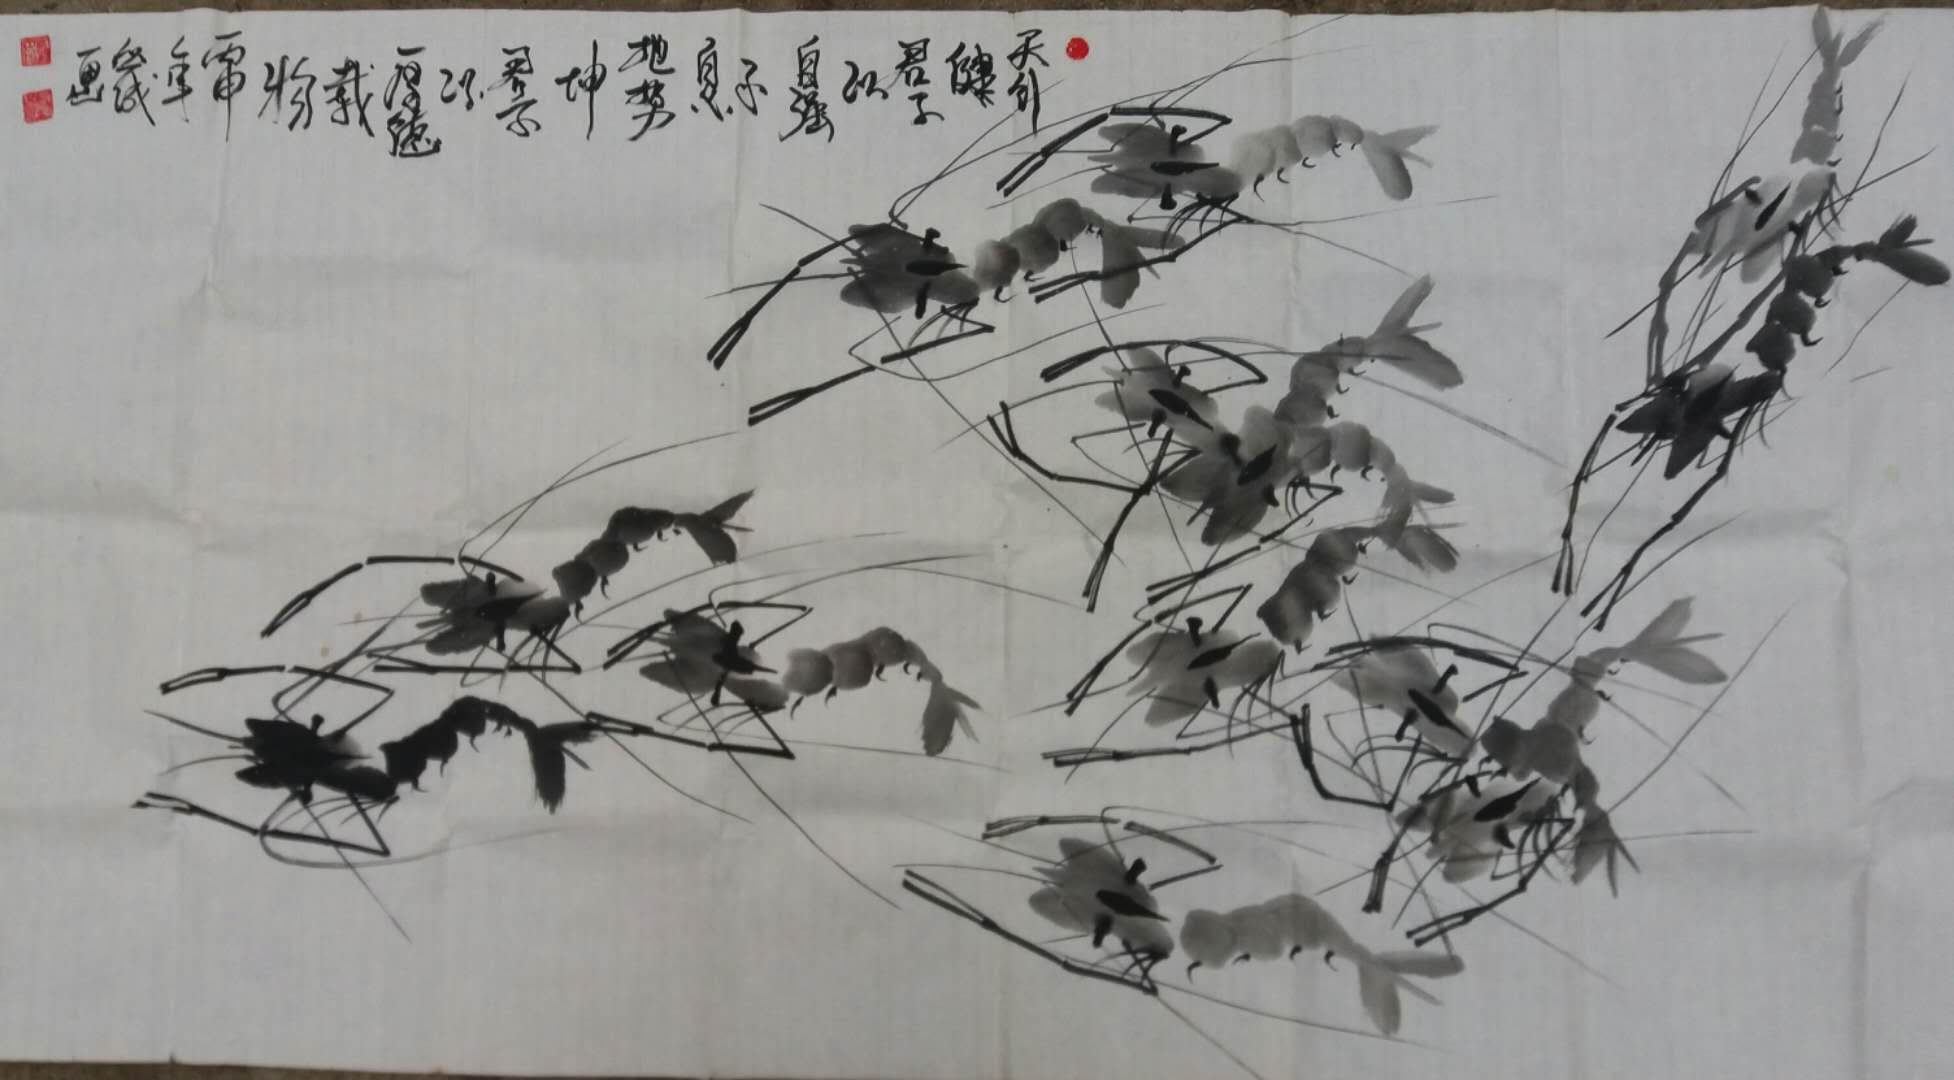 天行健君子以自强不息地势坤君子以厚德載物丙申年画